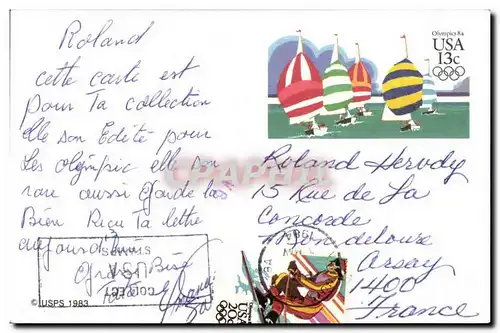 Roland
cette carte est
pour Ta collection
elle son Edité pour
Les olympic elle son
rare aussi garde las
Bien Reçu Ta lettre
aujourd'hui
Grosse Bise
Olympics 84
USA
13c
Roland Hervdy
15 Rue de La
Concorde
Mondelouze
Orsay
1400
France
© USPS 1983
USA
20c